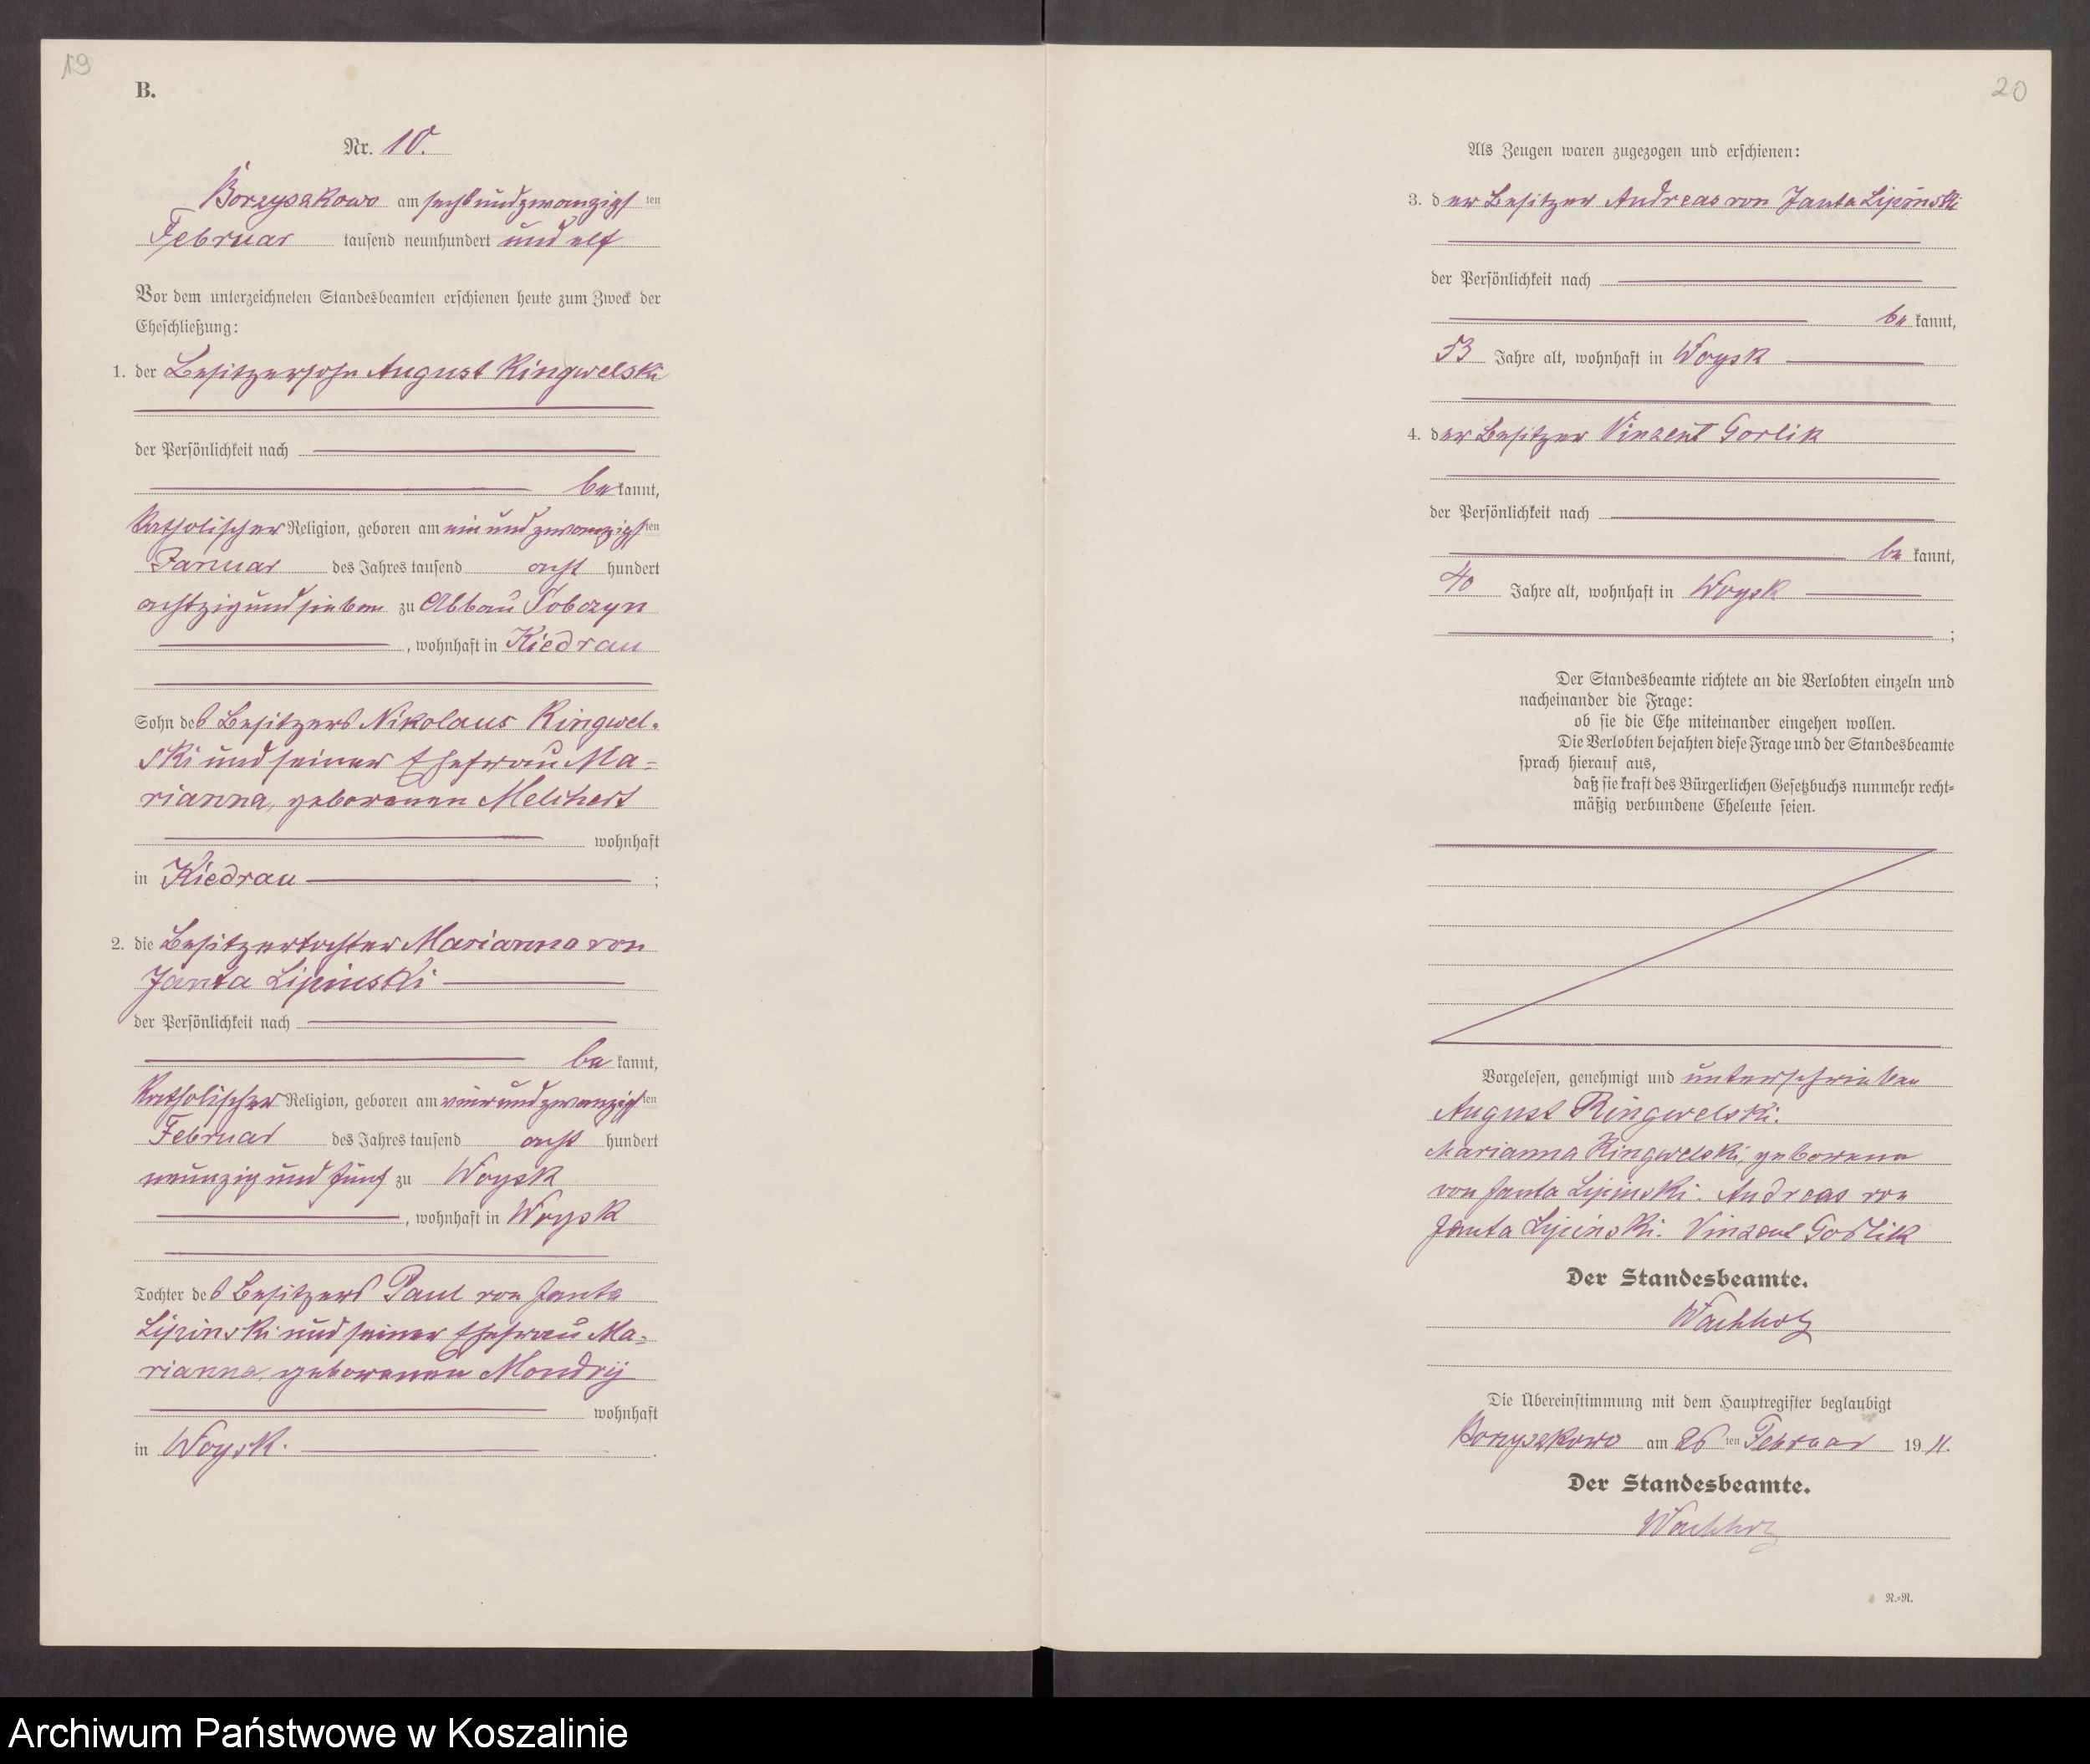 19
B.
Nr. 10.
Borzyszkowo am sechsundzwanzigsten
Februar tausend neunhundert und elf
Vor dem unterzeichneten Standesbeamten erschienen heute zum Zweck der
Eheschließung:
1. der Besitzersohn August Ringwelski
der Persönlichkeit nach
be kannt,
katholischer Religion, geboren am ein und zwanzigsten
Januar des Jahres tausend acht hundert
achtzig und sieben zu Abbau Sobczyn
, wohnhaft in Kiedrau
Sohn des Besitzers Nikolaus Ringwel-
ski und seiner Ehefrau Ma-
rianna, geborenen Melchert
wohnhaft
in Kiedrau ;
2. die Besitzertochter Marianna von
Janta Lipinski
der Persönlichkeit nach
be kannt,
katholischer Religion, geboren am vierundzwanzigsten
Februar des Jahres tausend acht hundert
neunzig und fünf zu Woysk
, wohnhaft in Woysk
Tochter des Besitzers Paul von Janta
Lipinski und seiner Ehefrau Ma-
rianna, geborenen Mondrij
wohnhaft
in Woysk. .
20
Als Zeugen waren zugezogen und erschienen:
3. der Besitzer Andreas von Janta Lipinski
der Persönlichkeit nach
be kannt,
53 Jahre alt, wohnhaft in Woysk
4. der Besitzer Vinzent Gorlik
der Persönlichkeit nach
be kannt,
40 Jahre alt, wohnhaft in Woysk
;
Der Standesbeamte richtete an die Verlobten einzeln und
nacheinander die Frage:
ob sie die Ehe miteinander eingehen wollen.
Die Verlobten bejahten diese Frage und der Standesbeamte
sprach hierauf aus,
daß sie kraft des Bürgerlichen Gesetzbuchs nunmehr recht-
mäßig verbundene Eheleute seien.
Vorgelesen, genehmigt und unterschrieben
August Ringwelski.
Marianna Ringwelski, geborene
von Janta Lipinski. Andreas von
Janta Lipinski. Vinzent Gorlik
Der Standesbeamte.
Wachholz
Die Übereinstimmung mit dem Hauptregister beglaubigt
Borzyszkowo am 26 ten Februar 19 11.
Der Standesbeamte.
Wachholz
R.-R.
Archiwum Państwowe w Koszalinie